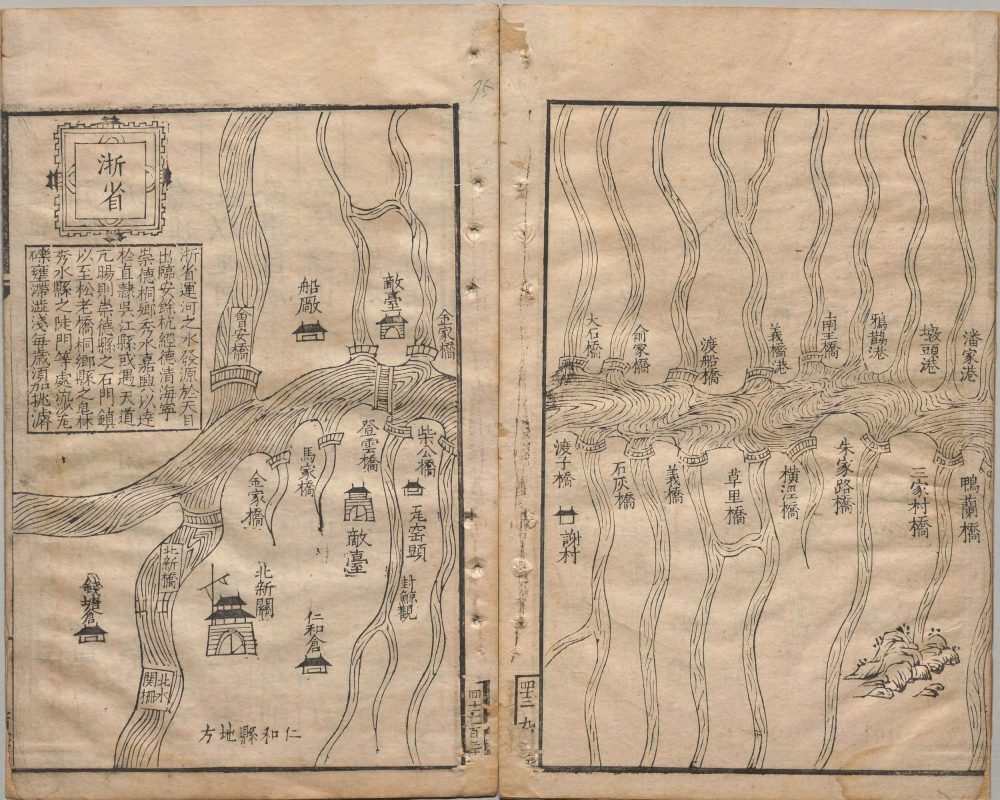 潘家港
墩頭港
鴉鵲港
南王橋
義橋港
渡船橋
俞家橋
大石橋
鴨蘭橋
三家村橋
朱家路橋
橫涇橋
草里橋
義橋
石灰橋
渡子橋
謝村
75
浙省
浙省運河之水發源於天目
出臨安餘杭經德清海寧
崇德桐鄉秀水嘉興以達
於直隸吳江縣或遇天道
亢暘則崇德縣之石門鎮
以至松老橋桐鄉縣之皂林
秀水縣之陡門等處瓦
礫壅滯淺每歲須加挑濬
金家橋
敵臺
船厰
會安橋
柴公橋
登雲橋
馬家橋
金家橋
瓦窑頭
敵臺
北新橋
封鯨觀
北新關
仁和倉
錢塘倉
北水
関柵
仁和縣地方